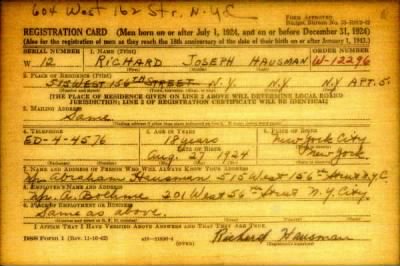 604 West 162 Str. N.Y.C
FORM APPROVED
REGISTRATION CARD (Men born on or after July 1, 1924, and on or before December 31, 1924)
(Also for the registration of men as they reach the 18th anniversary of the date of their birth on or after January 1, 1943.)
SERIAL NUMBER 1. NAME ORDER NUMBER
W 12 RICHARD JOSEPH HAUSMAN W-12296
2. PLACE OF RESIDENCE
515 WEST 156TH STREET N.Y. N.Y. N.Y APT. 5.
[THE PLACE OF RESIDENCE GIVEN ON LINE 2 ABOVE WILL DETERMINE LOCAL BOARD
JURISDICTION; LINE 2 OF REGISTRATION CERTIFICATE WILL BE IDENTICAL]
3. MAILING ADDRESS
Same
4. TELEPHONE 5. AGE IN YEARS 6. PLACE OF BIRTH
ED-4-4576 18 years New York City
DATE OF BIRTH
Aug. 27 1924 New York
7. NAME AND ADDRESS OF PERSON WHO WILL ALWAYS KNOW YOUR ADDRESS
Mr. Abraham Hausman 515 West 156th Street N.Y.C
8. EMPLOYER'S NAME AND ADDRESS
Mr. A. Boehme 201 West 56th Street N.Y. City.
9. PLACE OF EMPLOYMENT OR BUSINESS
Same as above.
I AFFIRM THAT I HAVE VERIFIED ABOVE ANSWERS AND THAT THEY ARE TRUE.
DSS Form 1 (Rev. 11-16-42) (OVER) Richard Hausman